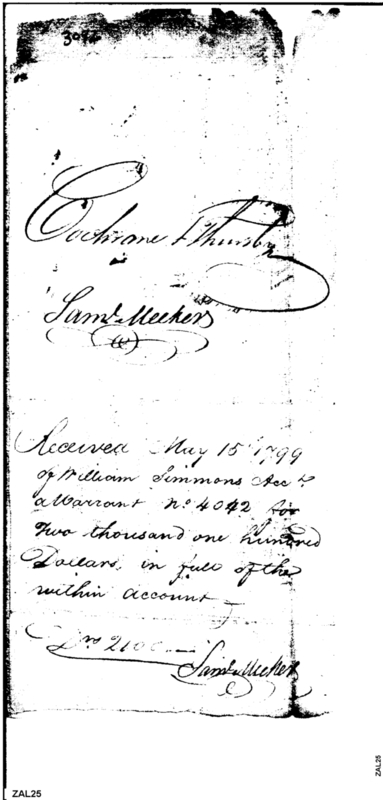 Cochrane & Thursby
Saml. Meekers
Received May 15th 1799
of William Simmons Acct.
a Warrant No. 4042 for
Two thousand one hundred
Dollars, in full of the
within account
Drs 2100
Saml. Meeker
ZAL25
ZAL25